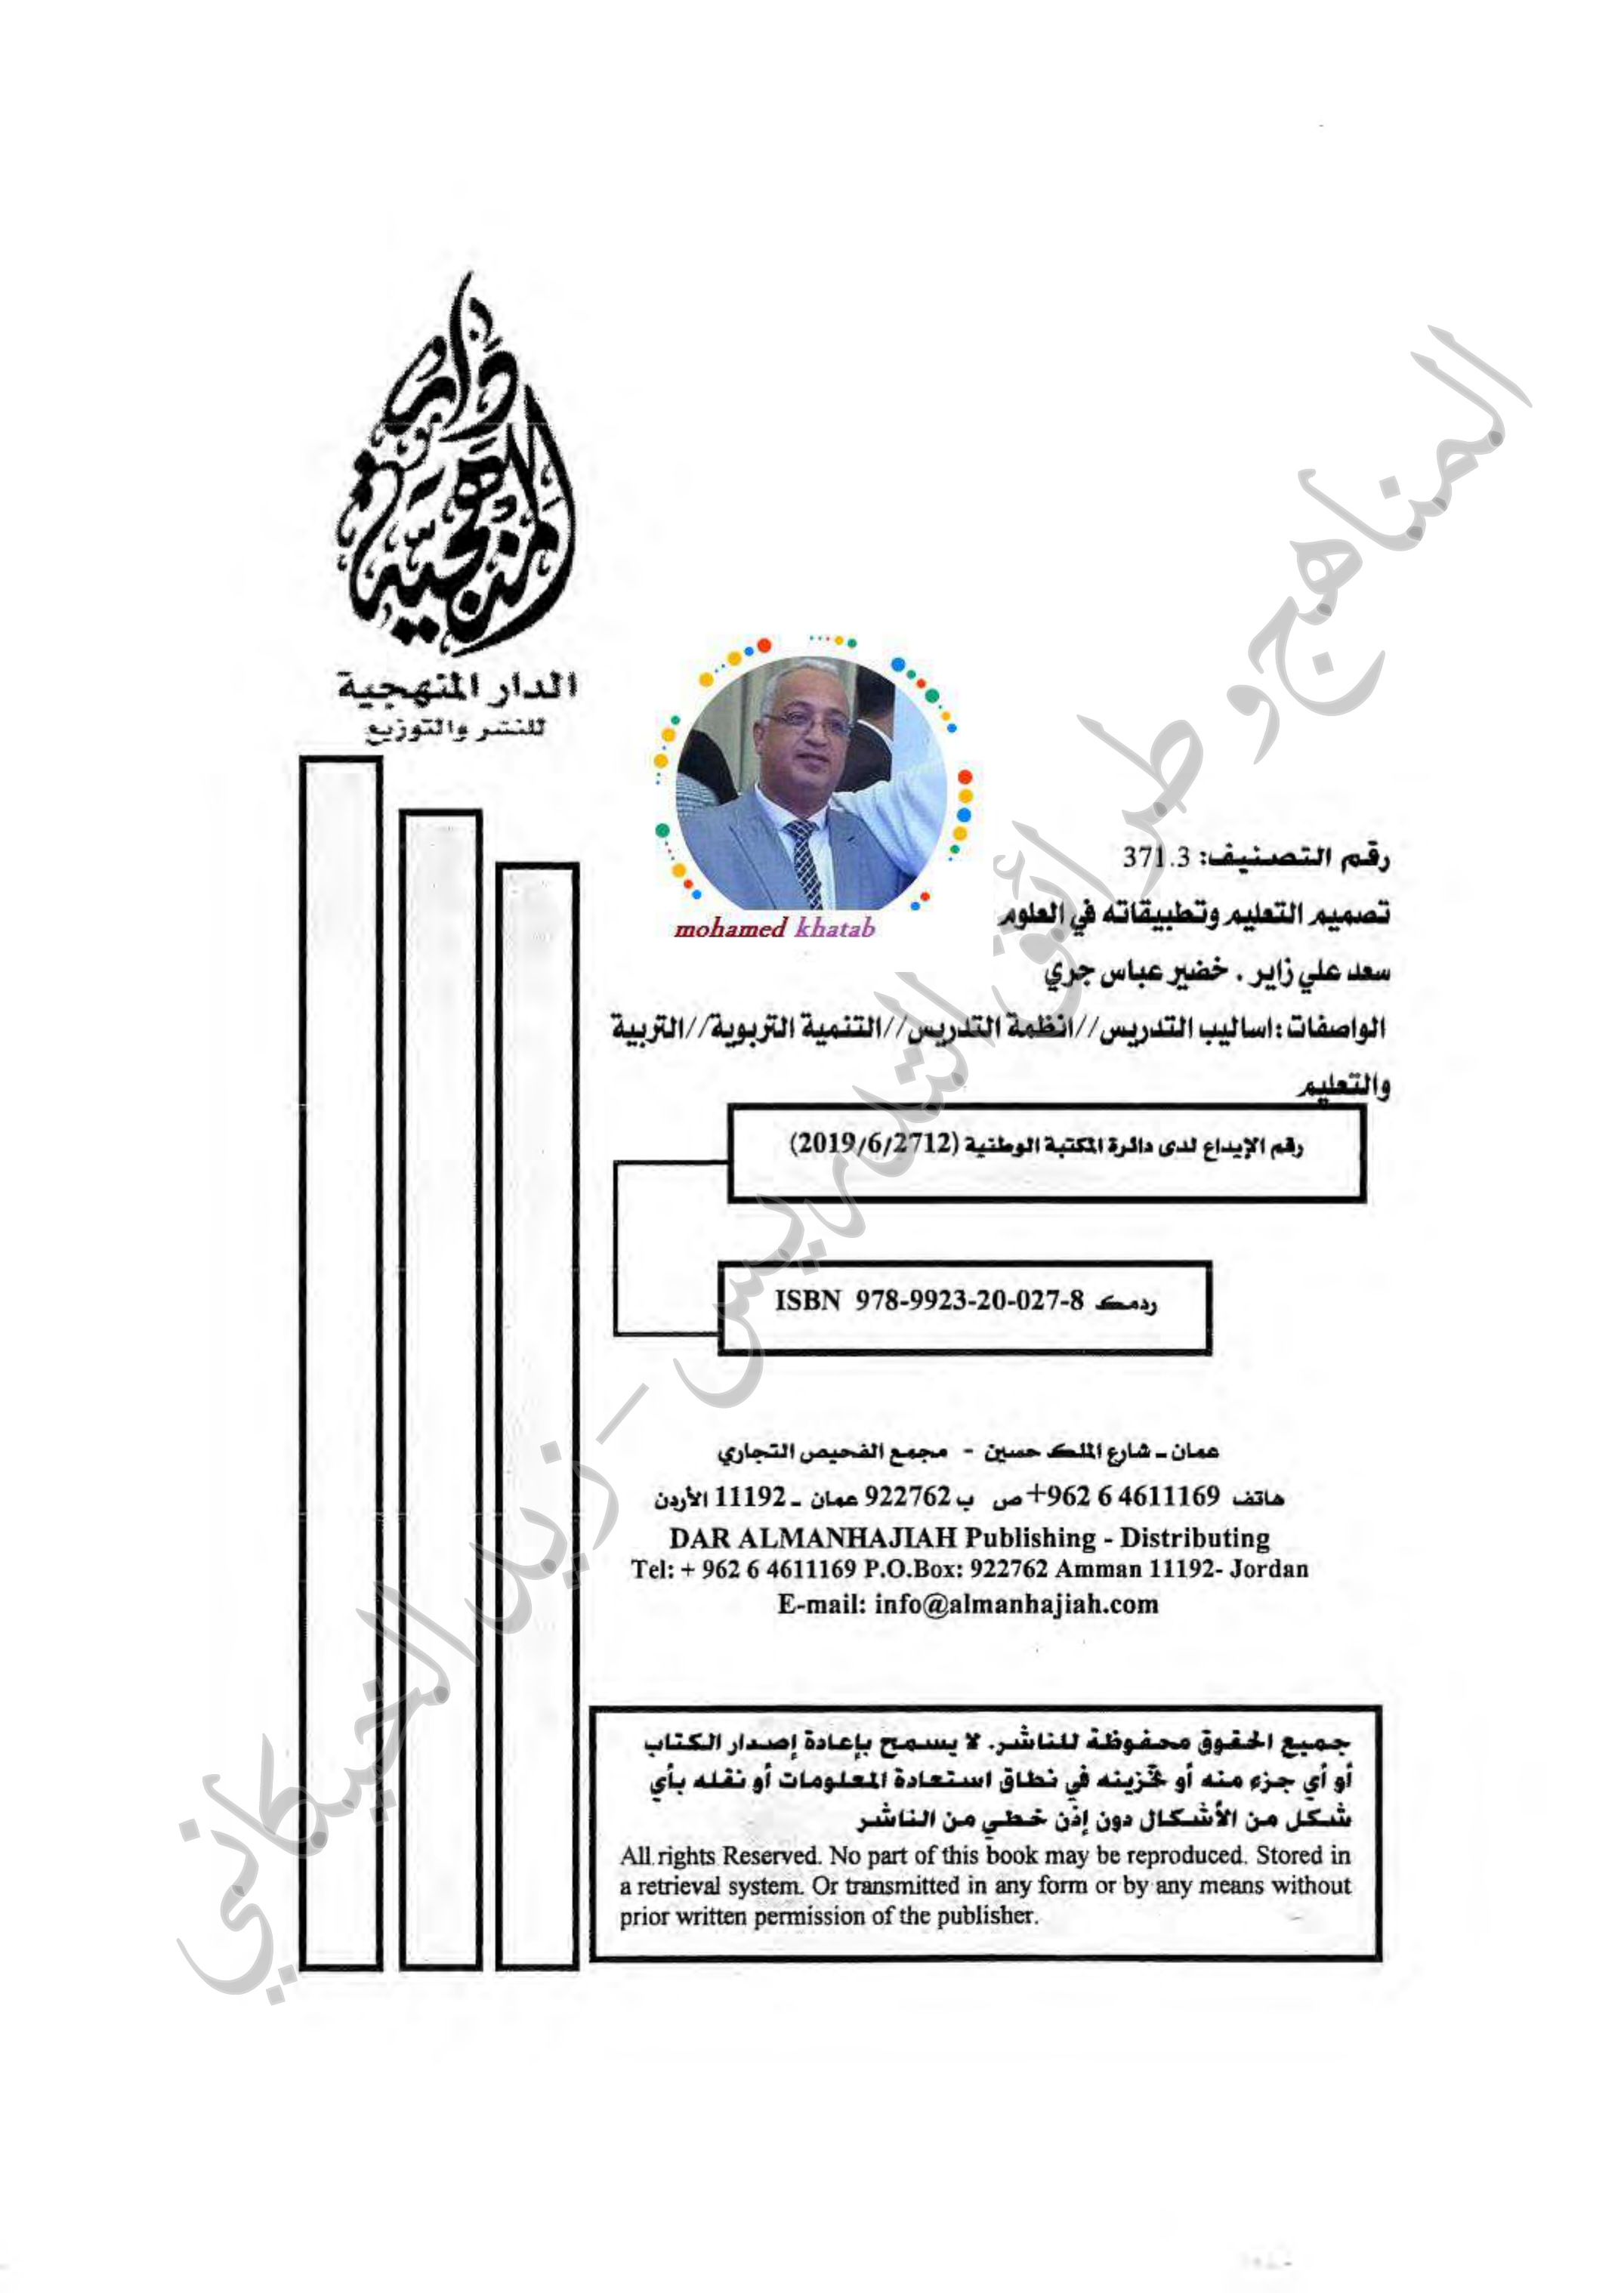 دار المنهجية
الدار المنهجية
للنشر والتوزيع
mohamed khatab
رقم التصنيف: 371.3
تصميم التعليم وتطبيقاته في العلوم
سعد علي زاير . خضير عباس جري
الواصفات :اساليب التدريس//انظمة التدريس//التنمية التربوية//التربية
والتعليم
رقم الإيداع لدى دائرة المكتبة الوطنية (2019/6/2712)
ردمك ISBN 978-9923-20-027-8
عمان ـ شارع الملك حسين - مجمع الفحيص التجاري
هاتف 4611169 6 962+ ص ب 922762 عمان ـ 11192 الأردن
DAR ALMANHAJIAH Publishing - Distributing
Tel: + 962 6 4611169 P.O.Box: 922762 Amman 11192- Jordan
E-mail: info@almanhajiah.com
جميع الحقوق محفوظة للناشر. لا يسمح بإعادة إصدار الكتاب
أو أي جزء منه أو تخزينه في نطاق استعادة المعلومات أو نقله بأي
شكل من الأشكال دون إذن خطي من الناشر
All rights Reserved. No part of this book may be reproduced. Stored in
a retrieval system. Or transmitted in any form or by any means without
prior written permission of the publisher.
المناهج و طرائق التدريس - زيد الخيكاني